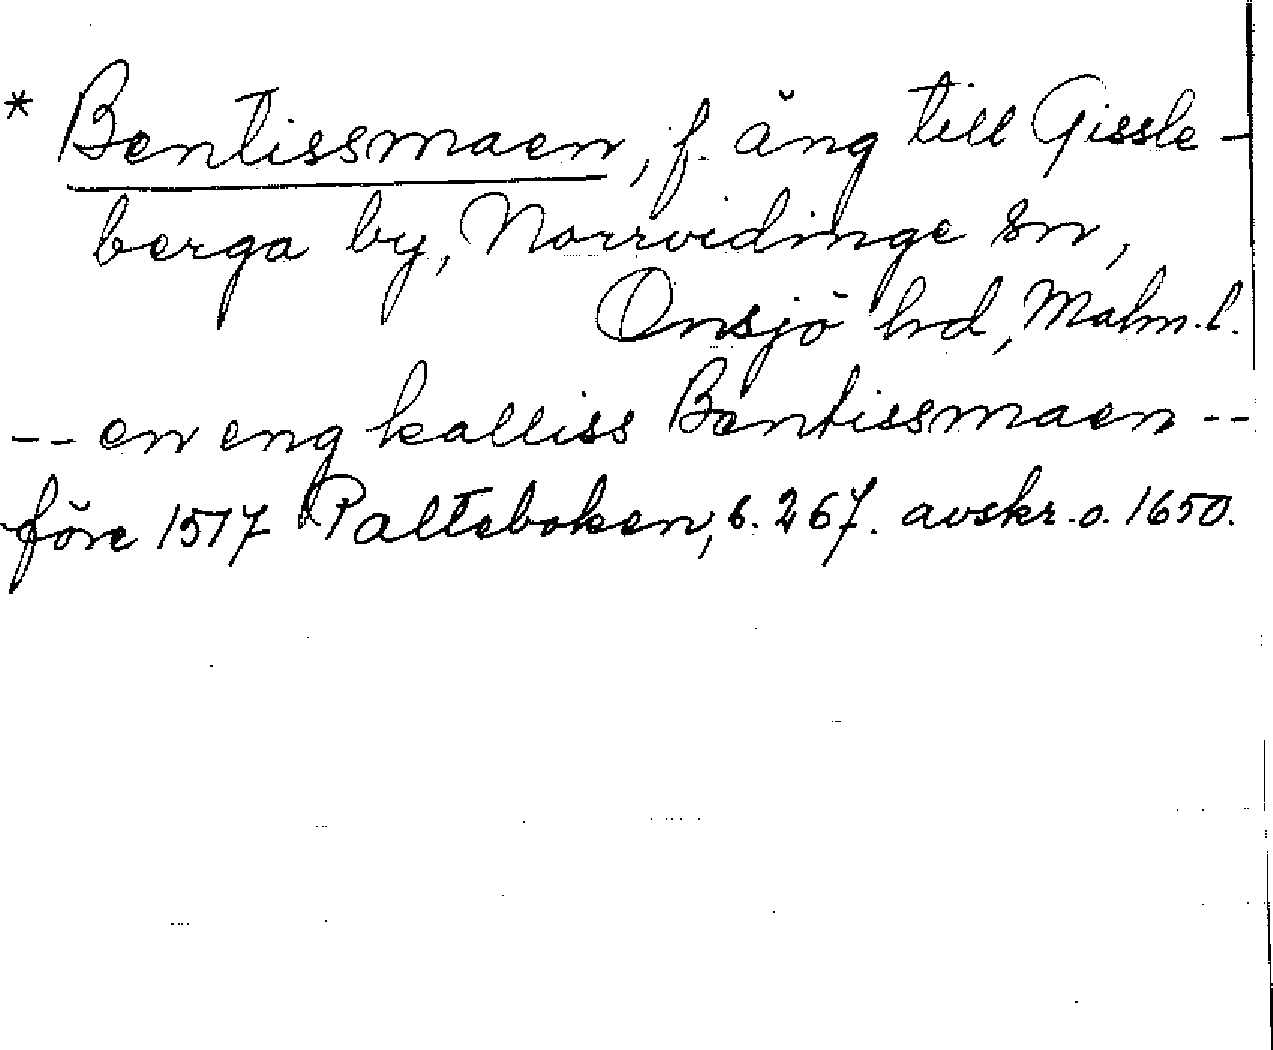 * Bentissmaen, f. äng till Gissle-
berga by, Norrvidinge sn,
Onsjö hd, Malm.l.
-- en eng kalliss Bentissmaen --
före 1517 Palteboken, s. 267. avskr. o. 1650.